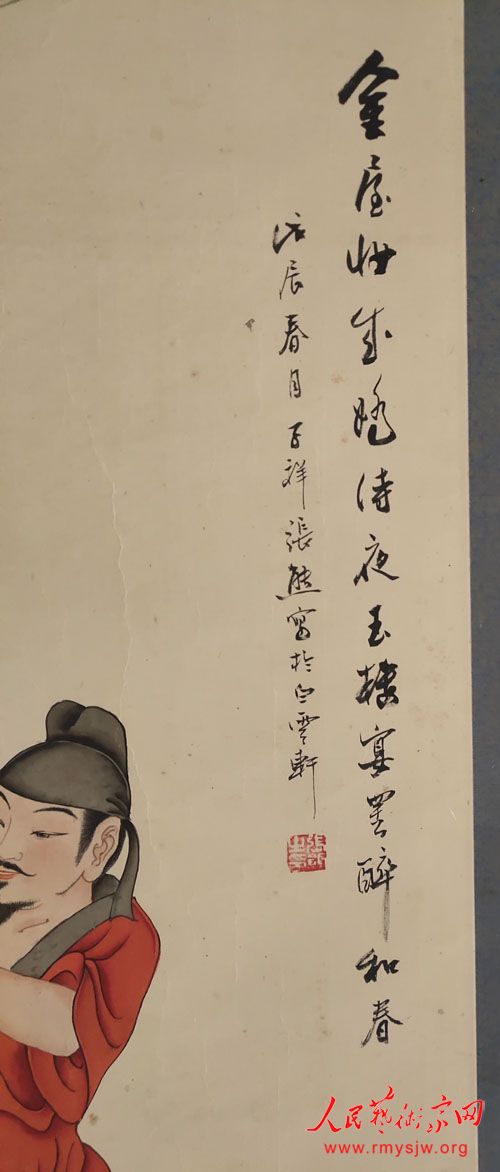 金屋妝成嬌侍夜玉樓宴罷醉和春
戊辰春月子祥張熊寫於白雲軒
人民藝術家网
www.rmysjw.org